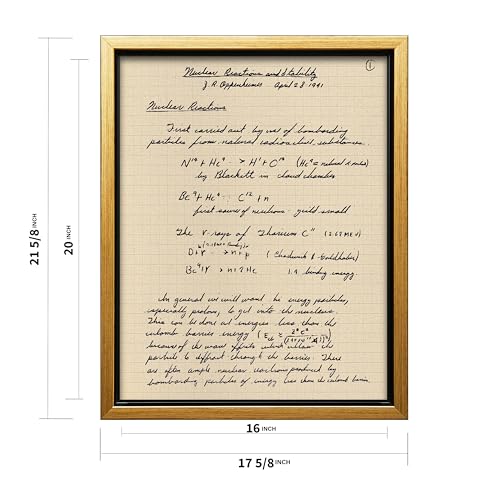 Nuclear Reactions and Stability
①
J. R. Oppenheimer - April 23 1941
Nuclear Reactions
First carried out by use of bombarding
particles from natural radioactive substances.
N¹⁴ + He⁴ → H¹ + C¹⁴ (He⁴ = natural α rules)
by Blackett in cloud chamber
Be⁹ + He⁴ C¹² + n
first source of neutrons - yield small
The γ rays of Thorium C" (2.62 MEV)
D + γ → n + p (Chadwick & Goldhaber)
Be⁹ + γ → n + 2 He 1.9 binding energy.
In general we will want the energy particles,
especially protons, to get into the nucleus.
This can be done at energies less than the
coulomb barrier energy
because of the wave effects which allow the
particle to diffract through the barrier. There
are often ample nuclear reactions produced by
bombarding particles of energy less than the coulomb barrier.
21 5/8 INCH
20 INCH
16 INCH
17 5/8 INCH